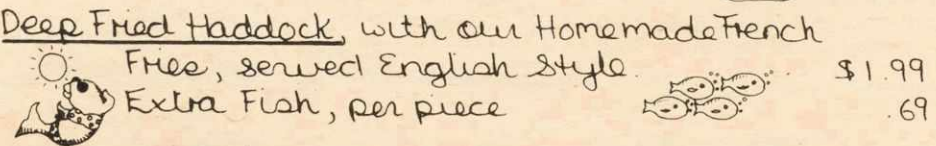 Deep Fried Haddock, with our Homemade French
Fries, served English Style. $1.99
Extra Fish, per piece .69